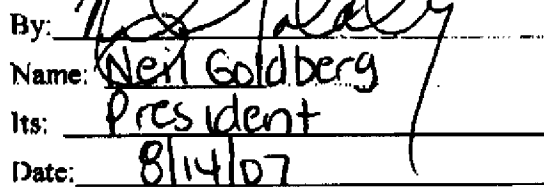 By:
Name: Neil Goldberg
Its: President
Date: 8/14/07